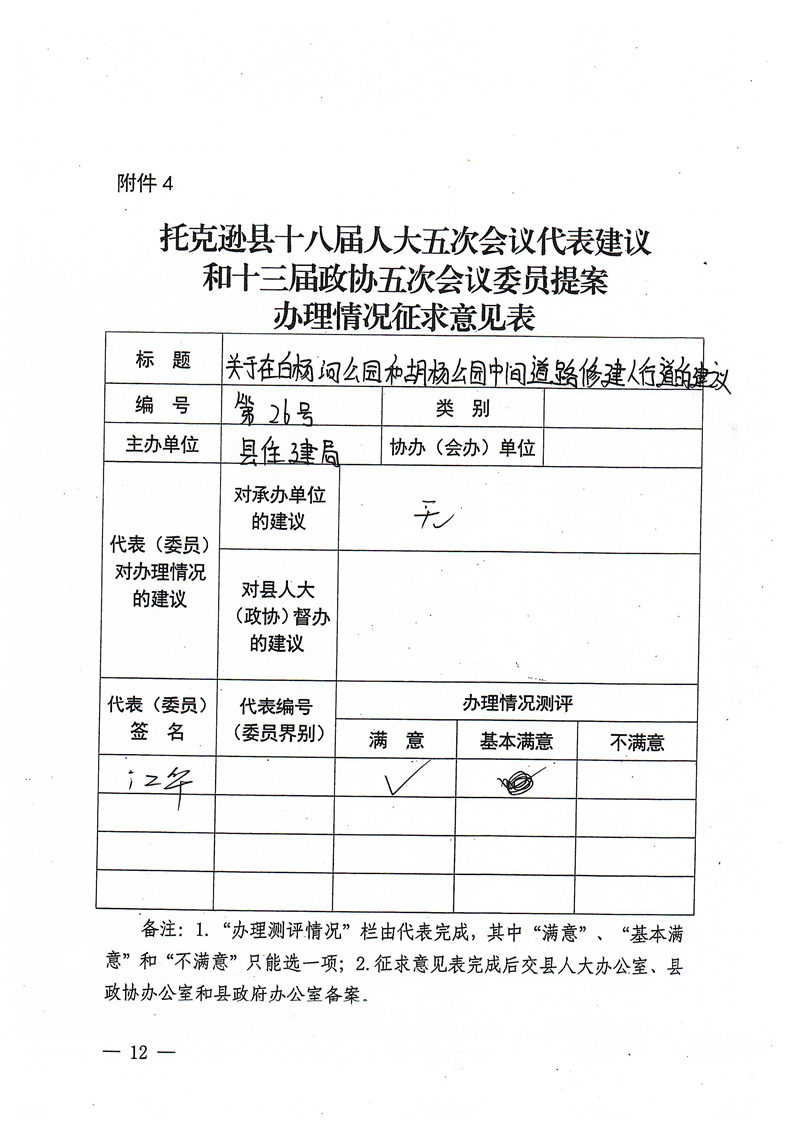 附件4
托克逊县十八届人大五次会议代表建议
和十三届政协五次会议委员提案
办理情况征求意见表
标 题 关于在白杨河公园和胡杨公园中间道路修建人行道的建议
编 号 第26号 类 别
主办单位 县住建局 协办（会办）单位
代表（委员）
对办理情况
的建议
对承办单位
的建议
无
对县人大
（政协）督办
的建议
代表（委员）
签 名
代表编号
（委员界别）
办理情况测评
满 意 基本满意 不满意
江年 ✓
备注：1.“办理测评情况”栏由代表完成，其中“满意”、“基本满
意”和“不满意”只能选一项；2.征求意见表完成后交县人大办公室、县
政协办公室和县政府办公室备案。
— 12 —